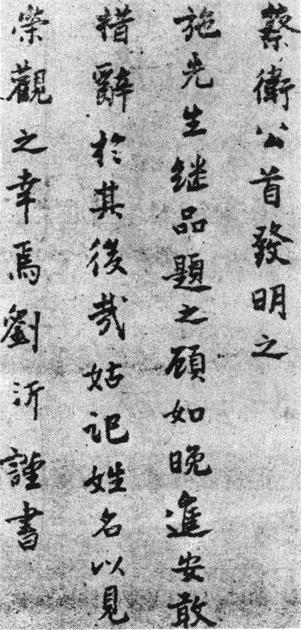 蔡衛公首發明之
施先生继品題之顧如晚進安敢
措辭於其後哉姑記姓名以見
榮觀之幸焉劉沂謹書